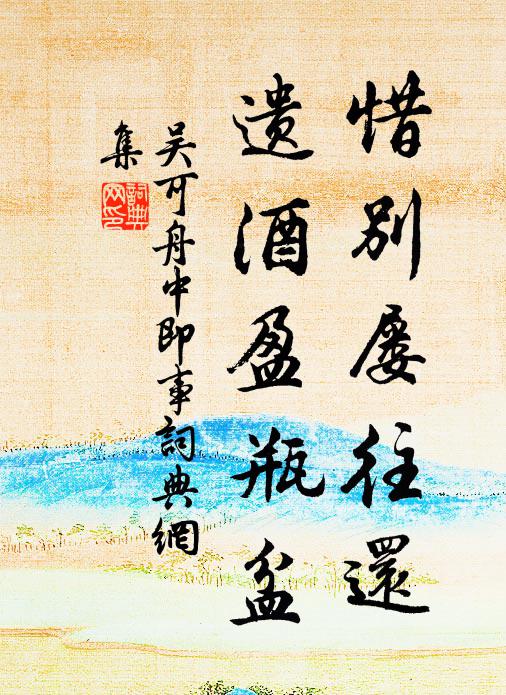 惜別屡往還
遗酒盈瓶盆
吴可舟中即事詞典網
集
詞典网印